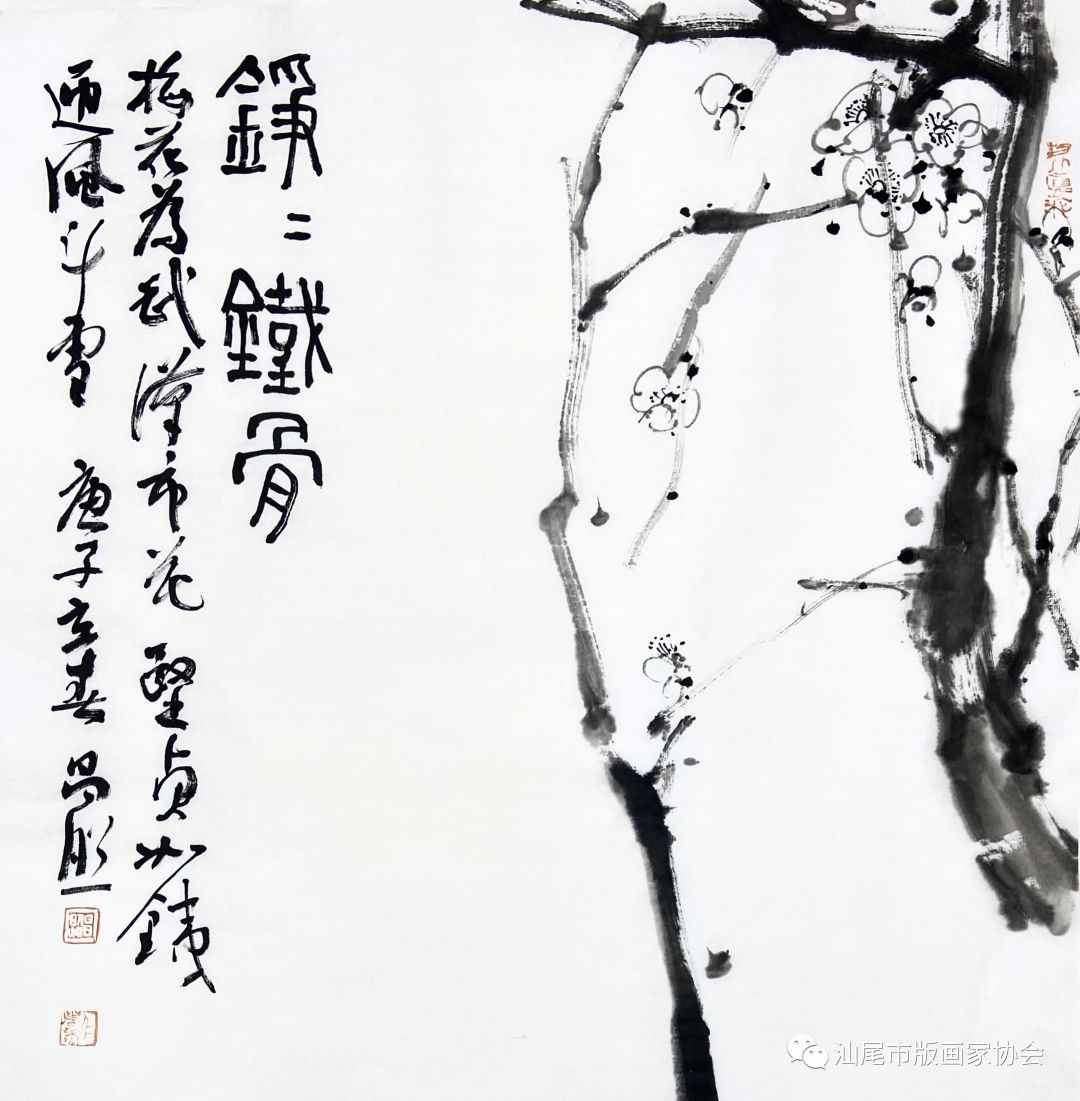 錚〻鐵骨
梅花為武漢市花 堅貞如銕
迎風斗雪 庚子立春 昌彤
汕尾市版画家协会